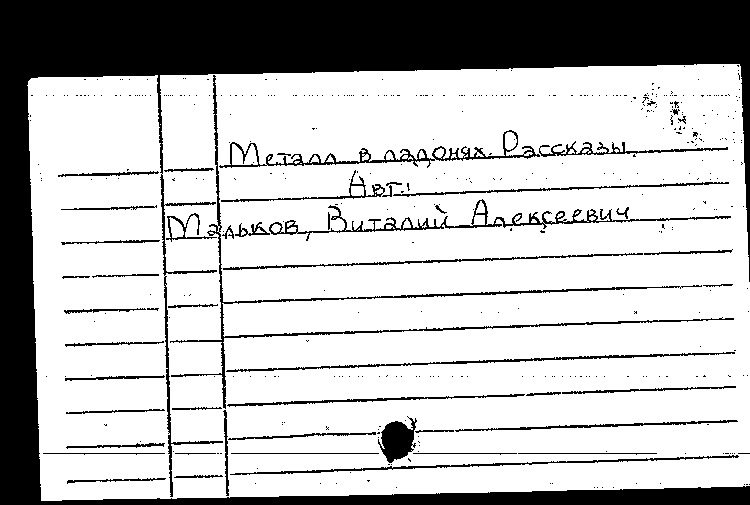 Металл в ладонях. Рассказы.
Авт.:
Мальков, Виталий Алексеевич